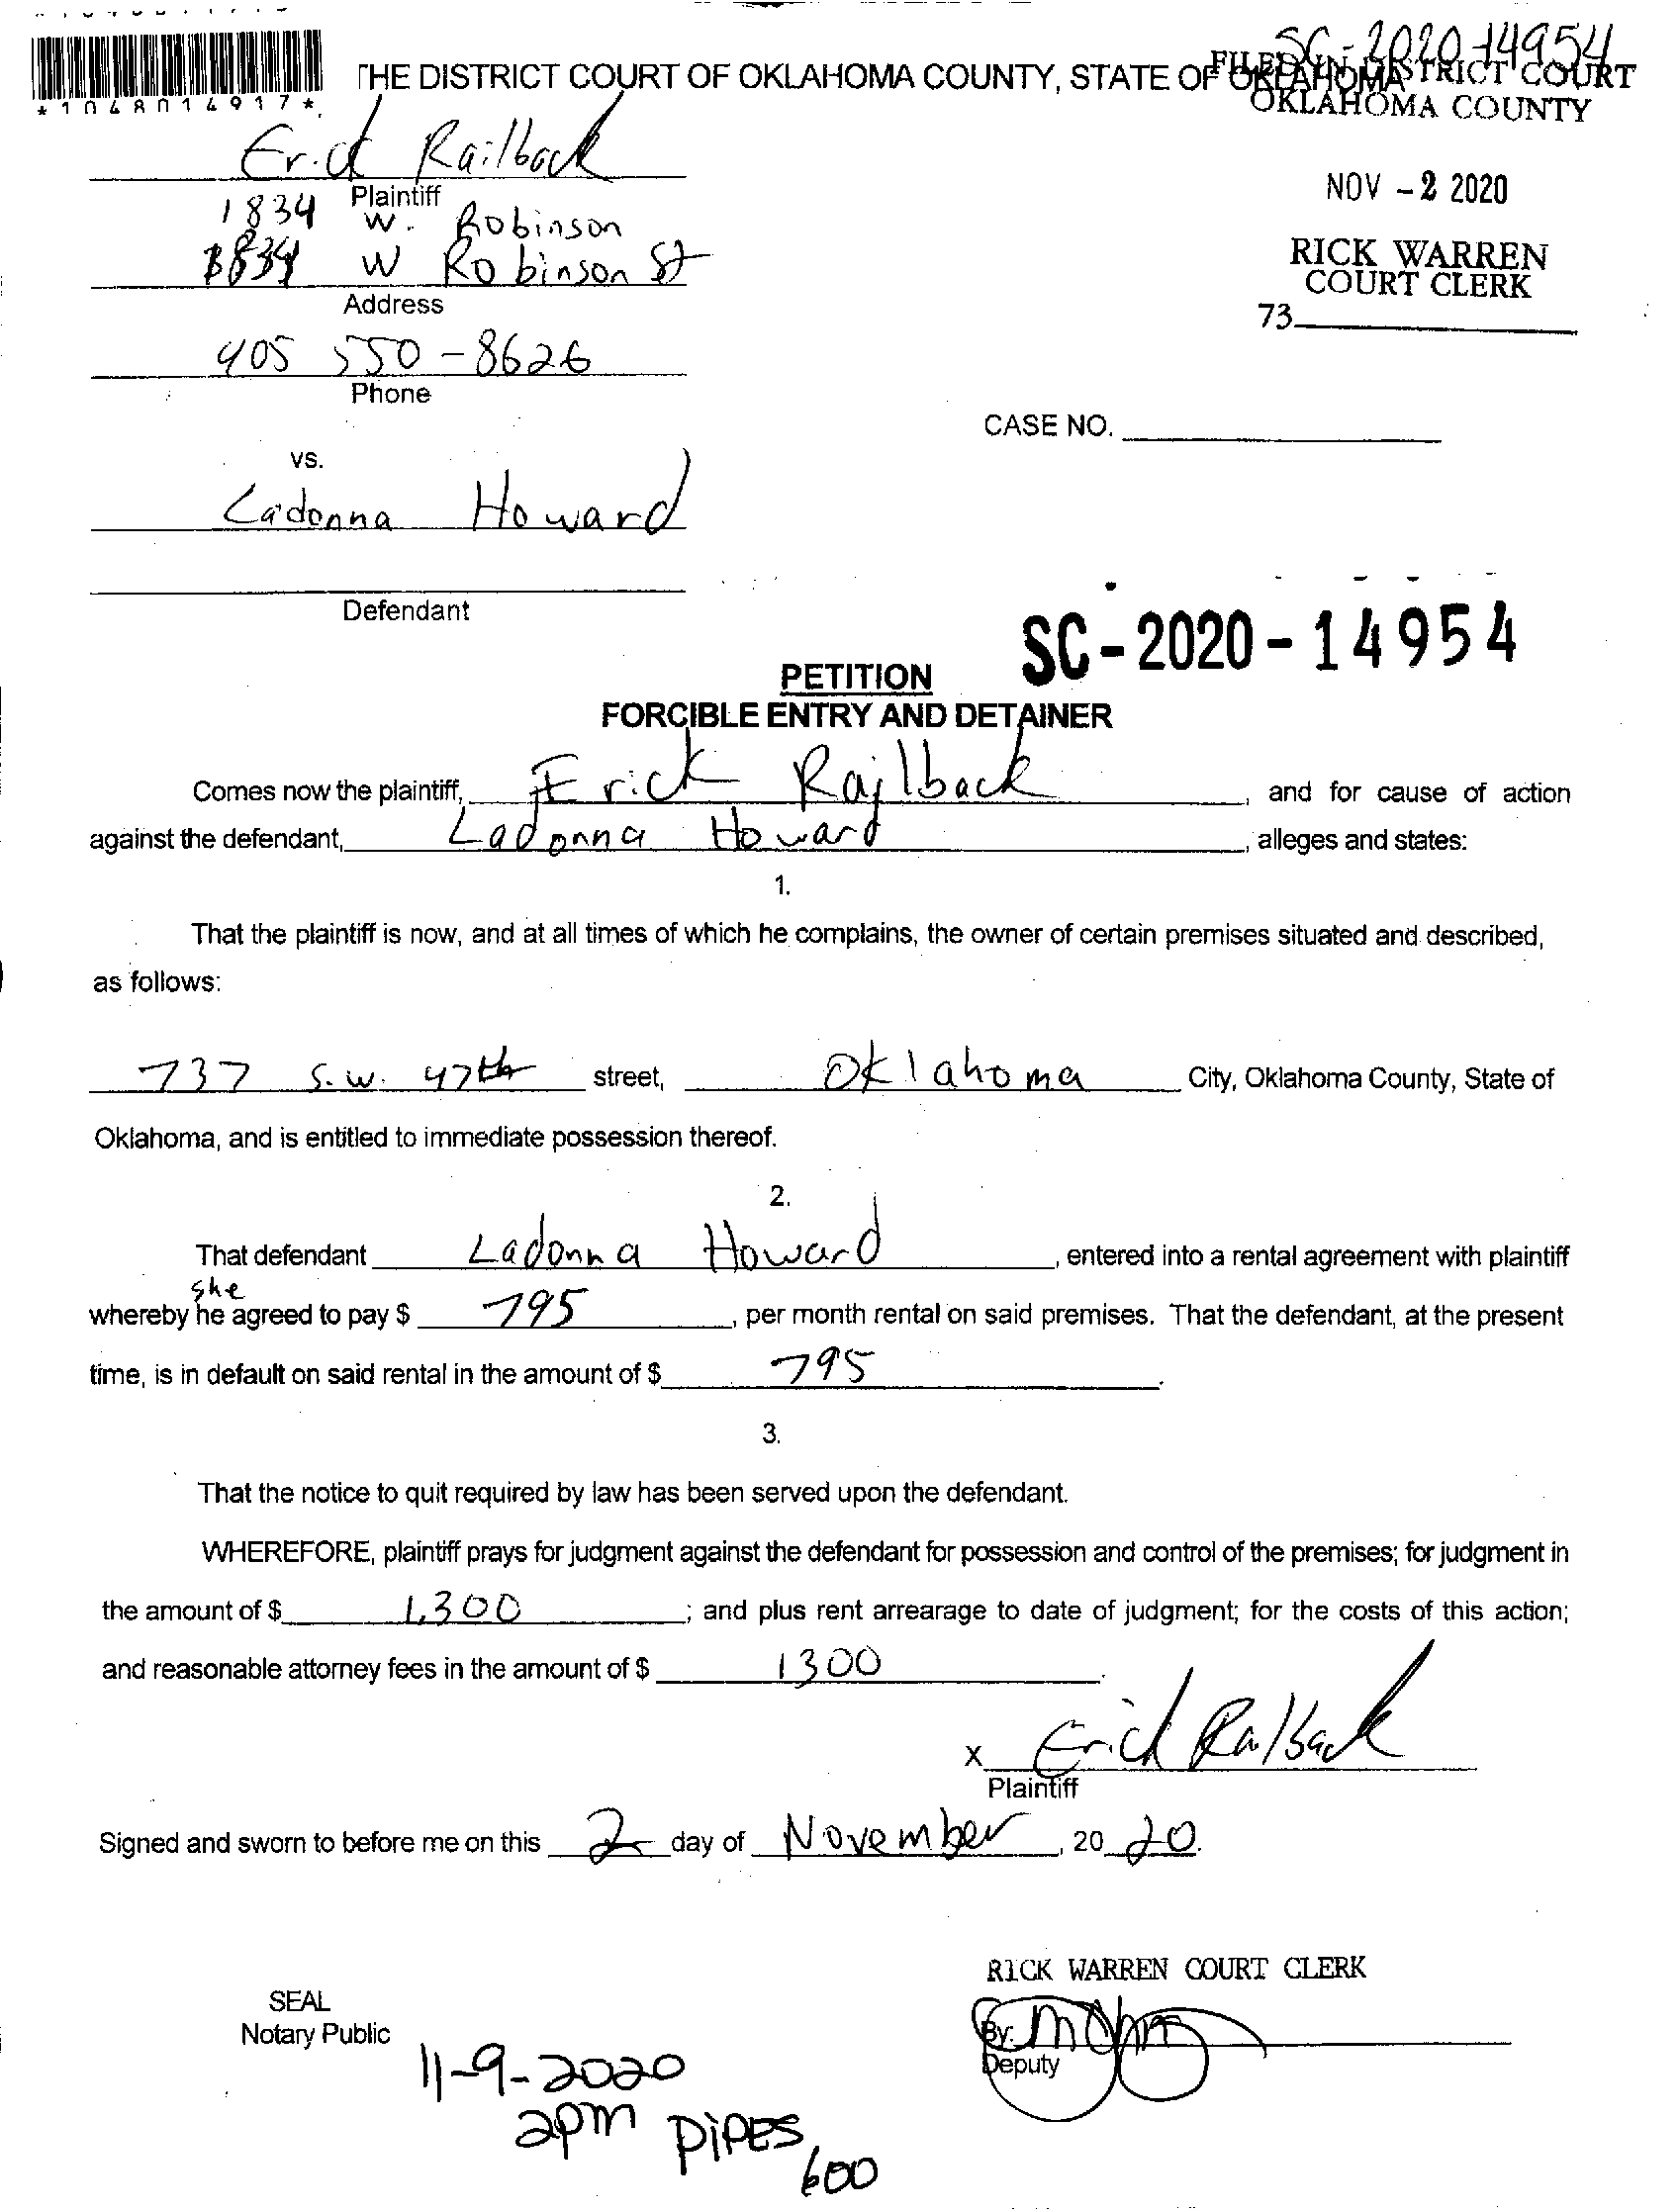 SC-2020-14954
THE DISTRICT COURT OF OKLAHOMA COUNTY, STATE OF OKLAHOMA
FILED IN DISTRICT COURT
OKLAHOMA COUNTY
*1048014917*
Erick Railback
Plaintiff
NOV -2 2020
1834 W. Robinson
1834 W Robinson St
Address
RICK WARREN
COURT CLERK
73
405 550-8626
Phone
CASE NO.
vs.
Ladonna Howard
Defendant
SC-2020-14954
PETITION
FORCIBLE ENTRY AND DETAINER
Comes now the plaintiff, Erick Railback, and for cause of action
against the defendant, Ladonna Howard, alleges and states:
1.
That the plaintiff is now, and at all times of which he complains, the owner of certain premises situated and described,
as follows:
737 S.W. 47th street, Oklahoma City, Oklahoma County, State of
Oklahoma, and is entitled to immediate possession thereof.
2.
That defendant Ladonna Howard, entered into a rental agreement with plaintiff
she
whereby he agreed to pay $ 795, per month rental on said premises. That the defendant, at the present
time, is in default on said rental in the amount of $ 795.
3.
That the notice to quit required by law has been served upon the defendant.
WHEREFORE, plaintiff prays for judgment against the defendant for possession and control of the premises; for judgment in
the amount of $ 1,300; and plus rent arrearage to date of judgment; for the costs of this action;
and reasonable attorney fees in the amount of $ 1300.
x Erick Railback
Plaintiff
Signed and sworn to before me on this 2 day of November, 20 20.
RICK WARREN COURT CLERK
SEAL
Notary Public
By:
Deputy
11-9-2020
2pm PiPES
600